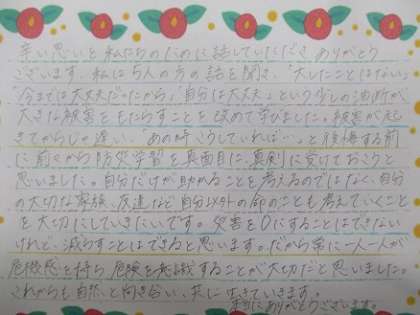 辛い思いを私たちのために話していただきありがとう
ございます。私は5人の方の話を聞き、"大したことはない"
"今までは大丈夫だったから""自分は大丈夫"という少しの油断が
大きな被害をもたらすことを改めて学びました。被害が起
きてからじゃ遅い、"あの時こうしていれば…"と後悔する前
に前々から防災学習を真面目に、真剣に受けておこうと
思いました。自分だけが助かることを考えるのではなく、自分
の大切な家族、友達など自分以外の命のことも考えていくこと
を大切にしていきたいです。災害を0にすることはできない
けれど、減らすことはできると思います。だから常に一人一人が
危機感を持ち危険を意識することが大切だと思いました。
これからも自然と向き合い、共に生きていきます。
本当にありがとうございます。